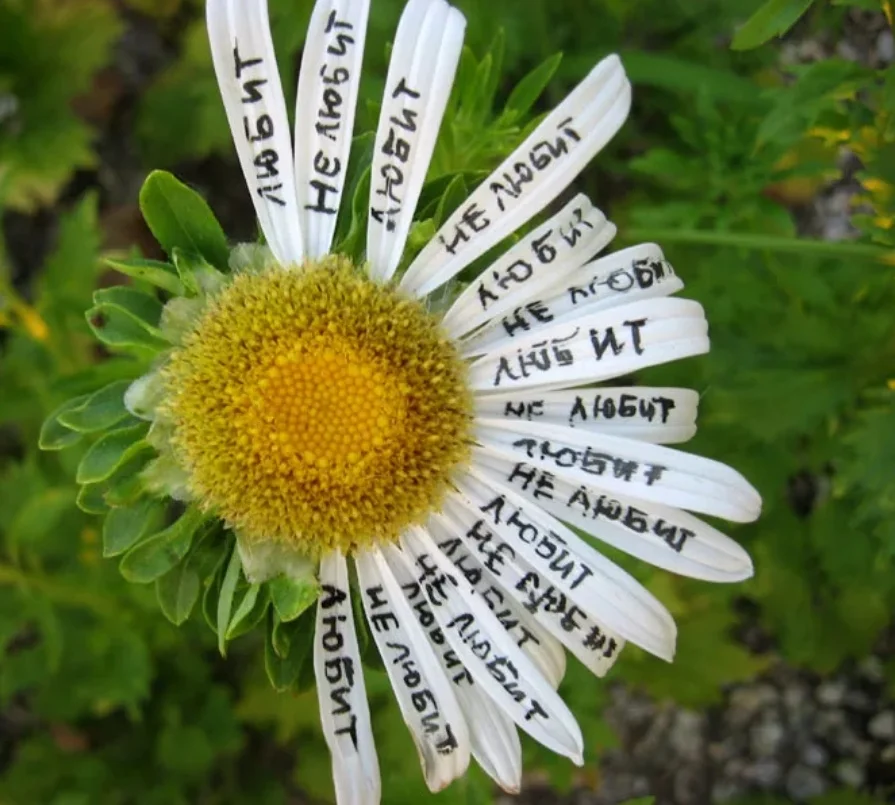 ЛЮБИТ
НЕ ЛЮБИТ
ЛЮБИТ
НЕ ЛЮБИТ
ЛЮБИТ
НЕ ЛЮБИТ
ЛЮБИТ
НЕ ЛЮБИТ
ЛЮБИТ
НЕ ЛЮБИТ
ЛЮБИТ
НЕ
ЛЮБИТ
НЕ ЛЮБИТ
ЛЮБИТ
НЕ ЛЮБИТ
ЛЮБИТ